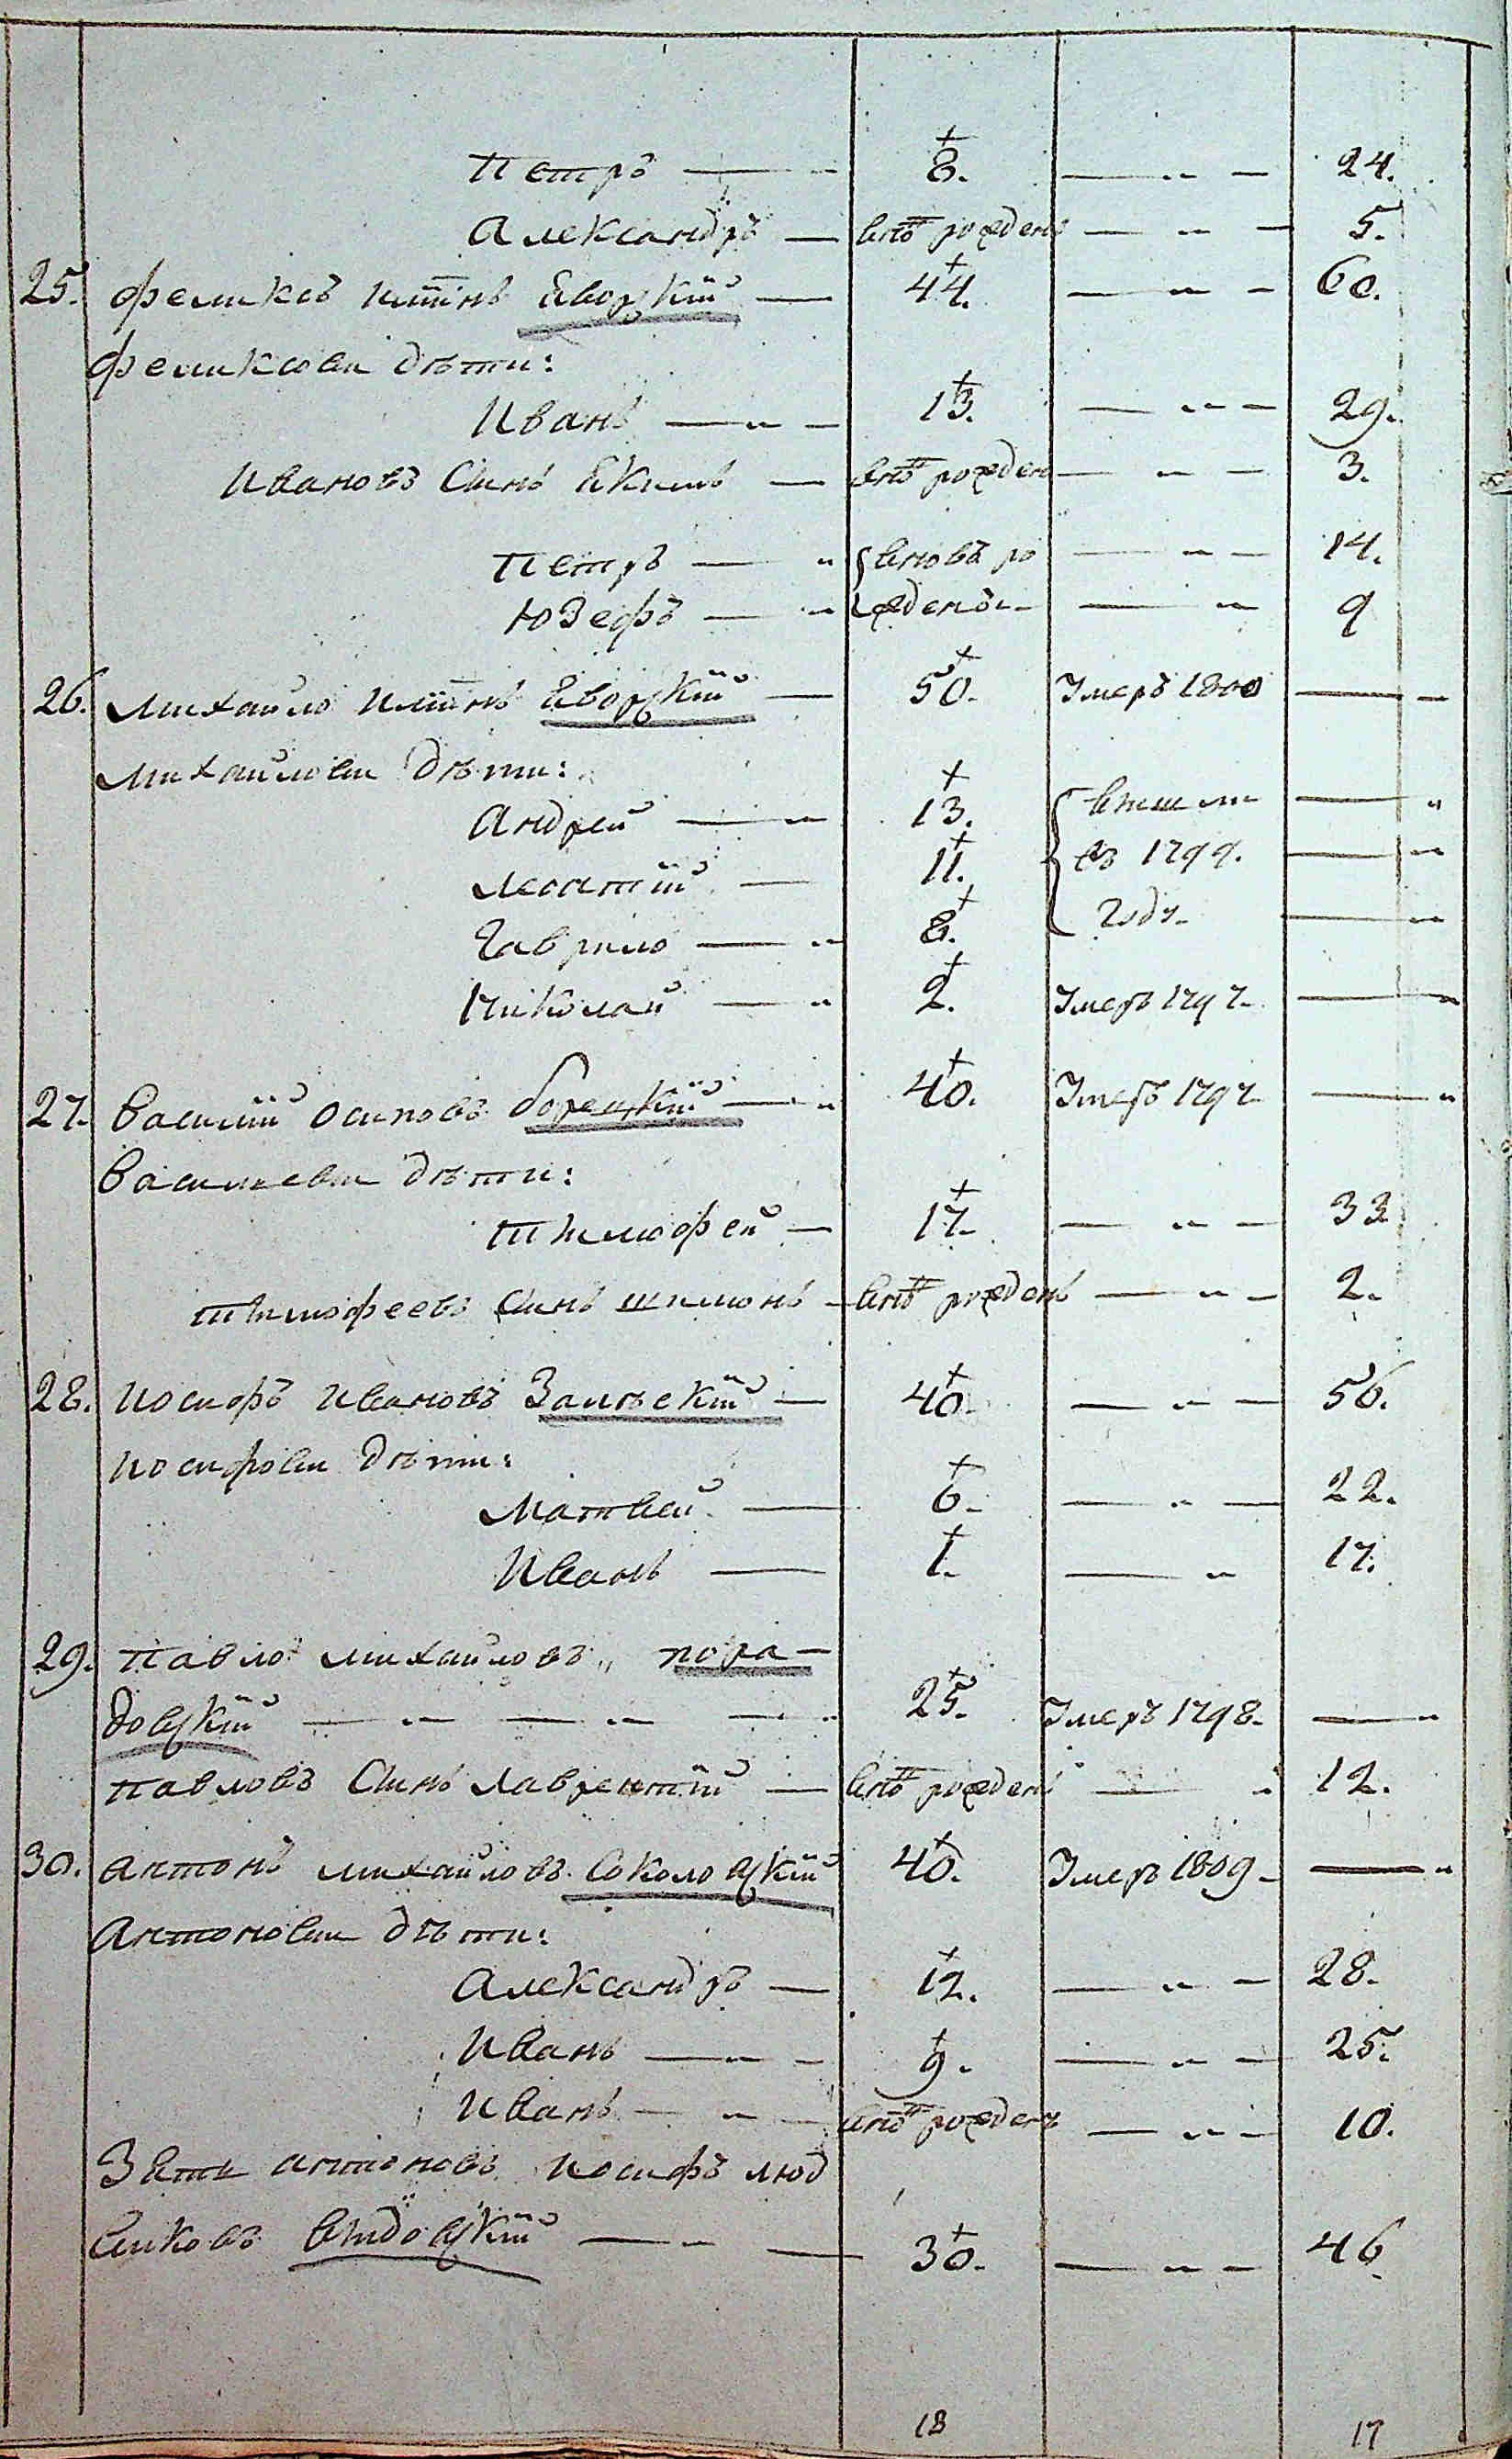 Петръ — 8. — „ — 24.
Александръ — внов рожденъ — „ — 5.
25. Феликсъ Яворскій — 44. — „ — 60.
Феликсовы дѣти:
Иванъ — „ — 13. — „ — 29.
Ивановъ Сынъ Якимъ — внов рожденъ — „ — 3.
Петръ — „ вновь ро — „ — 14.
Юзефъ — „ жденъі — „ 9
26. Михайло Яворскій — 50. Умеръ 1800 —
Михайловы дѣти:
Андрей — „ 13. — „
Леонтій — 11. въ 1799. — „
Гаврило — „ 8. году — „
Николай — „ 2. Умеръ 1797 — „
27. Василій Осиповъ Борецкій — „ 40. Умеръ 1797 — „
Васильевы дѣти:
Тимофей — 17. — „ — 33
Тимофеевъ Сынъ Шимонъ — внов рожденъ — „ — 2.
28. Иосифъ Ивановъ Замѣскій — 40 — „ — 56.
Иосифовы дѣти:
Матвей — 6 — „ — 22.
Иванъ — 1. — „ 17.
29. Павло Михайловъ „ Пора-
довскій — „ — „ — „ 25. Умеръ 1798. — „
Павловъ Сынъ Лаврентій — внов рожденъ — „ 12.
30. Антонъ Михайловъ Соколовскій 40. Умеръ 1809 — „
Антоновы дѣти:
Александръ — 12. — „ — 28.
Иванъ — „ — 9. — „ — 25.
Иванъ — „ — внов рожденъ — „ — 10.
Зять Антоновъ Иосифъ Люд
виковъ Витовскій — „ — 30. — „ — 46
18 17